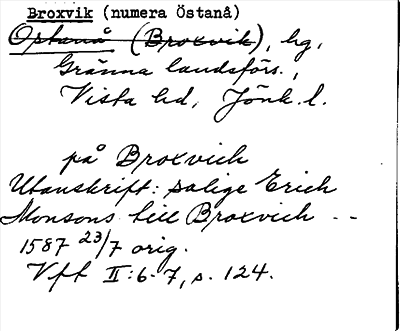 Broxvik (numera Östanå)
Östanå (Broxvik), hg,
Gränna landsförs.,
Vista hd, Jönk. l.
på Broxvich
Utanskrift: salige Erich
Monsons till Broxvich --
1587 23/7 orig.
Vff II:6-7, s. 124.